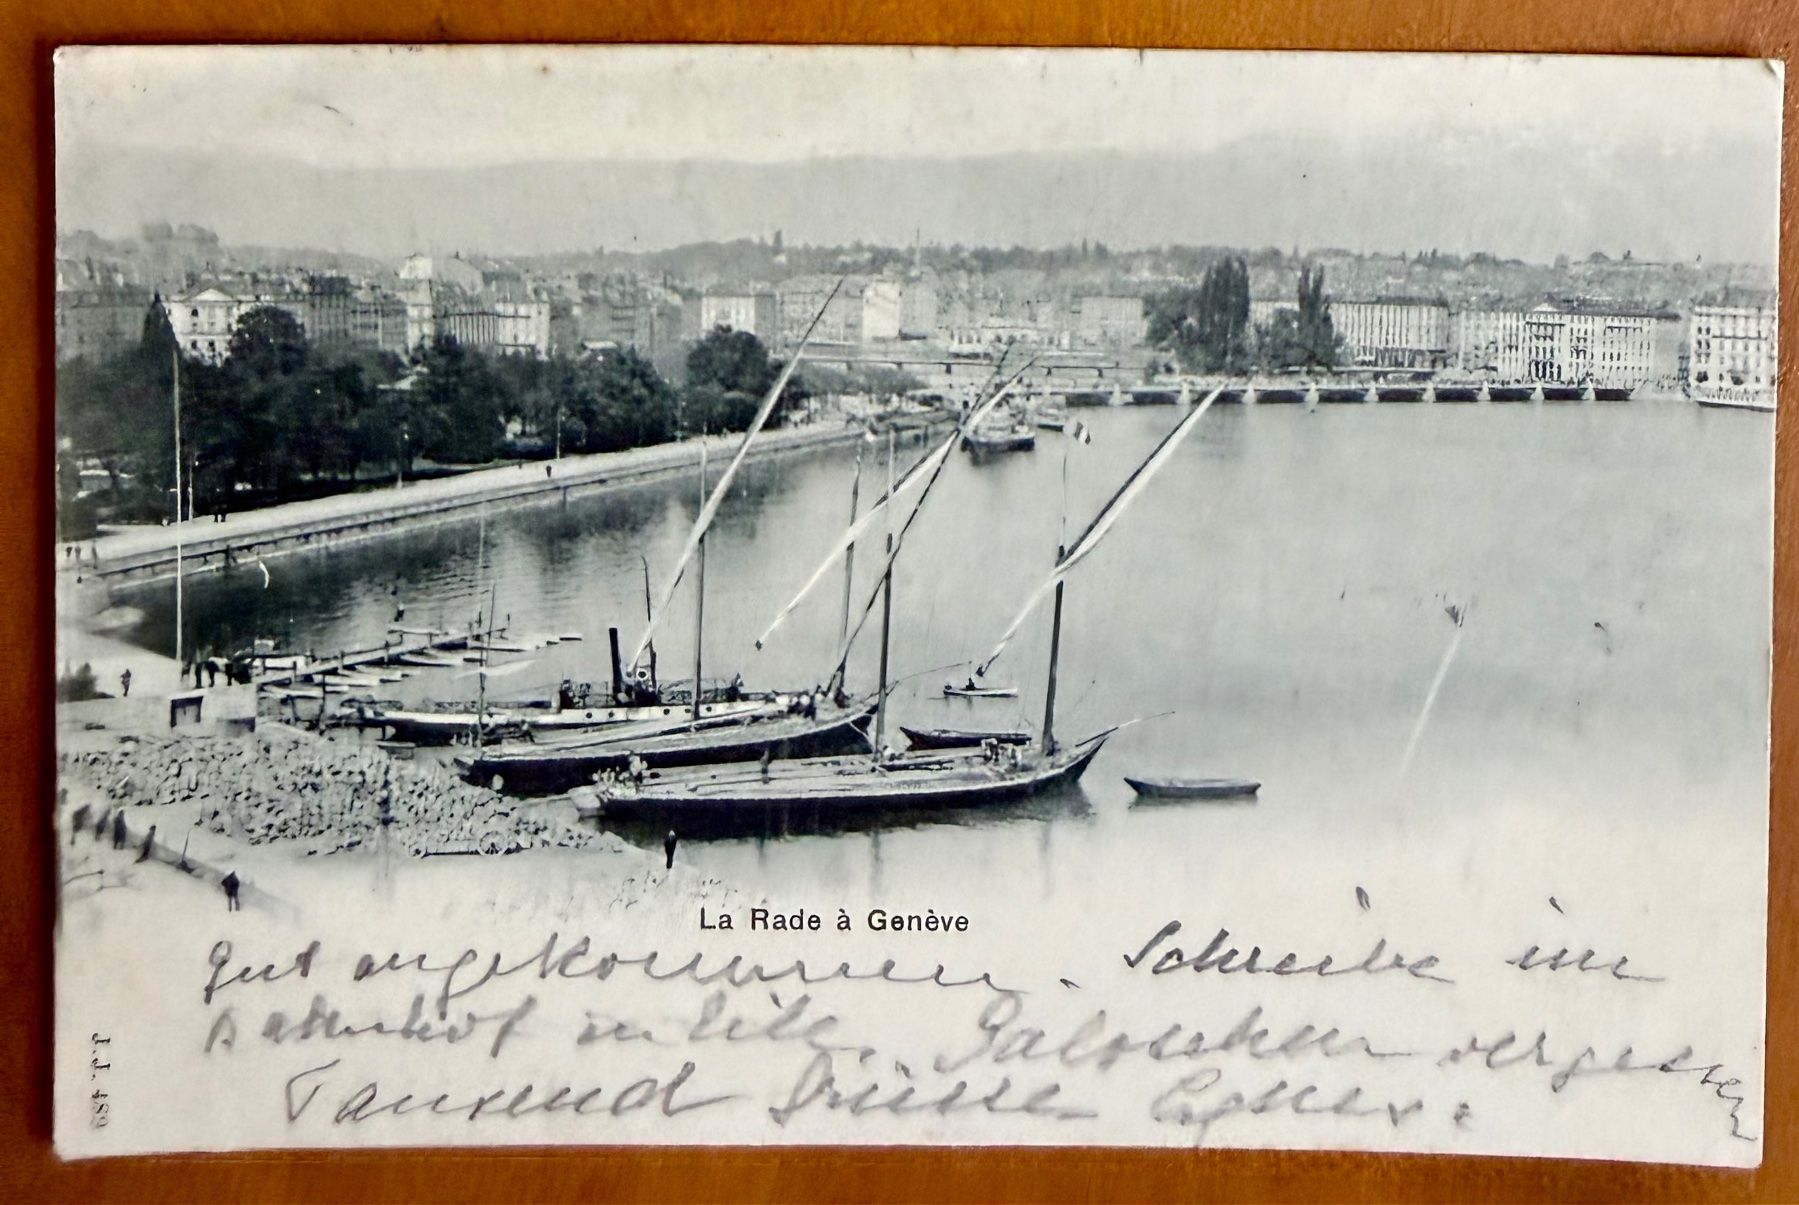 La Rade à Genève
Gut angekommen. Schreibe im
Bahnhof in Eile. Galoschen vergessen
Tausend Küsse
J.J. 489